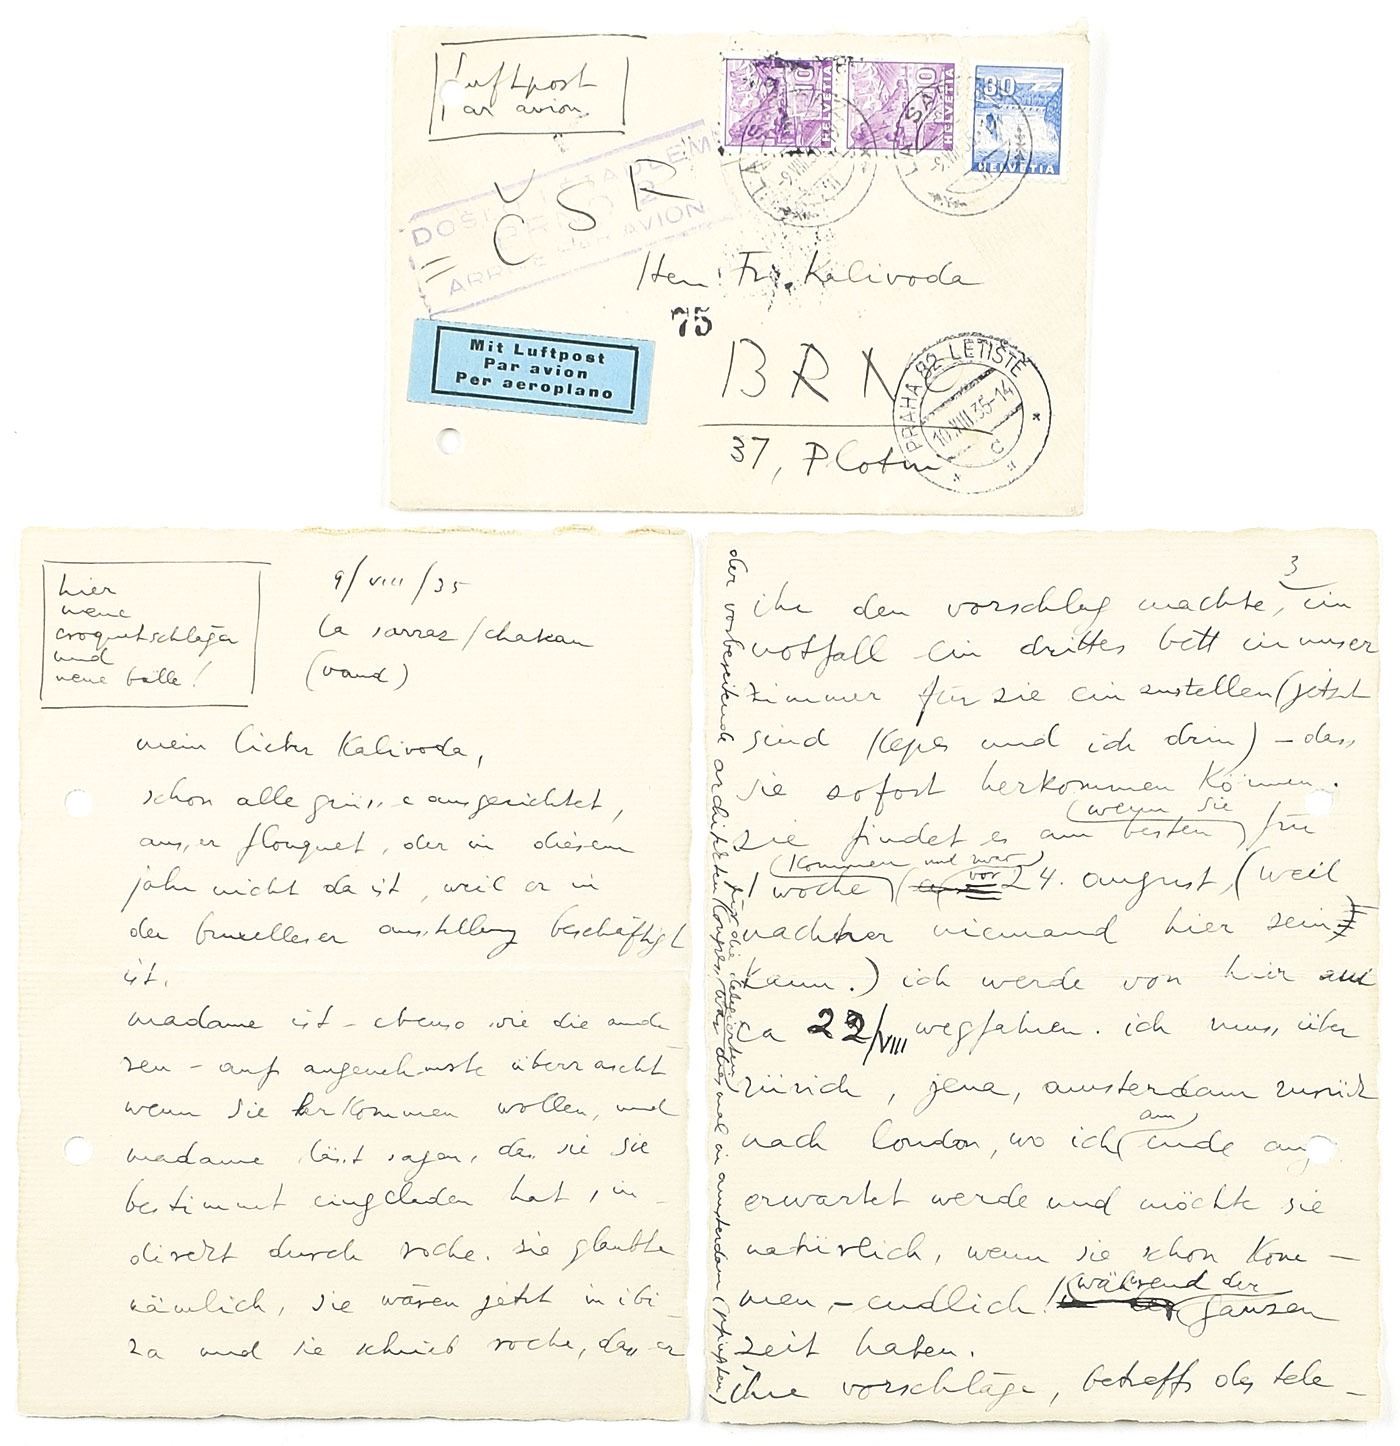 Luftpost
Par avion
ČSR
10
HELVETIA
10
HELVETIA
30
HELVETIA
LA SAR
DOŠLO LETADLEM
BRNO 2
ARRIVÉ PAR AVION
Herrn Fr. Kalivoda
75
BRNO
37, Plotni
Mit Luftpost
Par avion
Per aeroplano
PRAHA 82 LETIŠTĚ
10.VIII.35-14
C
hier
neue
croquetschläger
und
neue bälle!
9/VIII/35
la sarraz/chateau
(vaud)
mein lieber Kalivoda,
schon alle grüsse ausgerichtet,
ausser flouquet, der in diesem
jahr nicht da ist, weil er in
der bruxelleser ausstellung beschäftigt
ist.
madame ist - ebenso wie die ande-
ren - aufs angenehmste überrascht
wenn sie herkommen wollen, und
madame lässt sagen, dass sie sie
bestimmt eingeladen hat, in-
direkt durch roche. sie glaubte
nämlich, sie wären jetzt in ibi-
za und sie schrieb roche, dass er
3
ihr den vorschlag machte, im
notfall ein drittes bett in unser
zimmer für sie einzustellen (jetzt
sind Kepes und ich drin) - dass
sie sofort herkommen können.
sie findet es am besten (wenn sie) für
1 woche (kommen und zwar vor) 24. august, (weil
nachher niemand hier sein
kann.) ich werde von hier am
ca 22/VIII wegfahren. ich muss über
zürich, jena, amsterdam zurück
nach london, wo ich (am) ende aug.
erwartet werde und möchte sie
natürlich, wenn sie schon kom-
men, - endlich! (während der) ganzen
zeit haben.
ihre vorschläge, betreffs des tele-
der vorbereitende architektenkongress (für die delegierten) war diesmal in amsterdam (pfingsten)